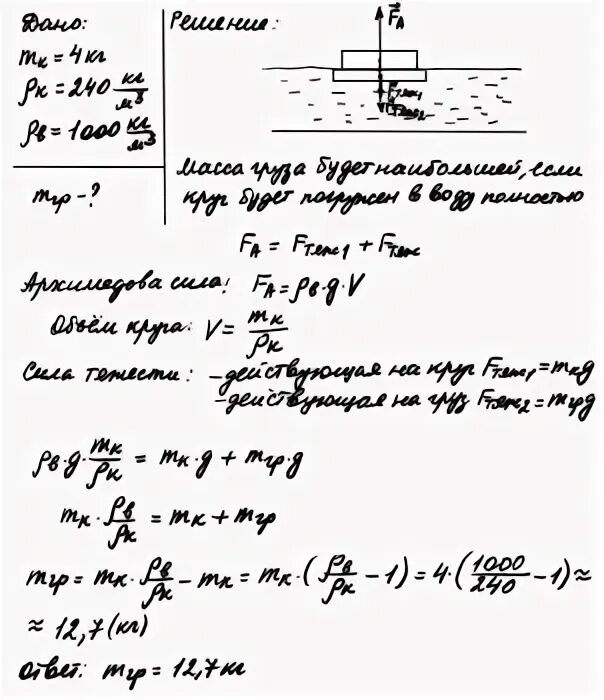 Дано:
m_к = 4 кг
ρ_к = 240 кг/м³
ρ_в = 1000 кг/м³
m_гр - ?
Решение:
F_A
F_тяж1
F_тяж2
Масса груза будет наибольшей, если
круг будет погружен в воду полностью
F_A = F_тяж1 + F_тяж
Архимедова сила: F_A = ρ_в·g·V
Объём круга: V = m_к/ρ_к
Сила тяжести: - действующая на круг F_тяж1 = m_к g
- действующая на груз F_тяж2 = m_гр g
ρ_в·g·m_к/ρ_к = m_к·g + m_гр·g
m_к·ρ_в/ρ_к = m_к + m_гр
m_гр = m_к·ρ_в/ρ_к - m_к = m_к·(ρ_в/ρ_к - 1) = 4·(1000/240 - 1) ≈
≈ 12,7 (кг)
Ответ: m_гр = 12,7 кг